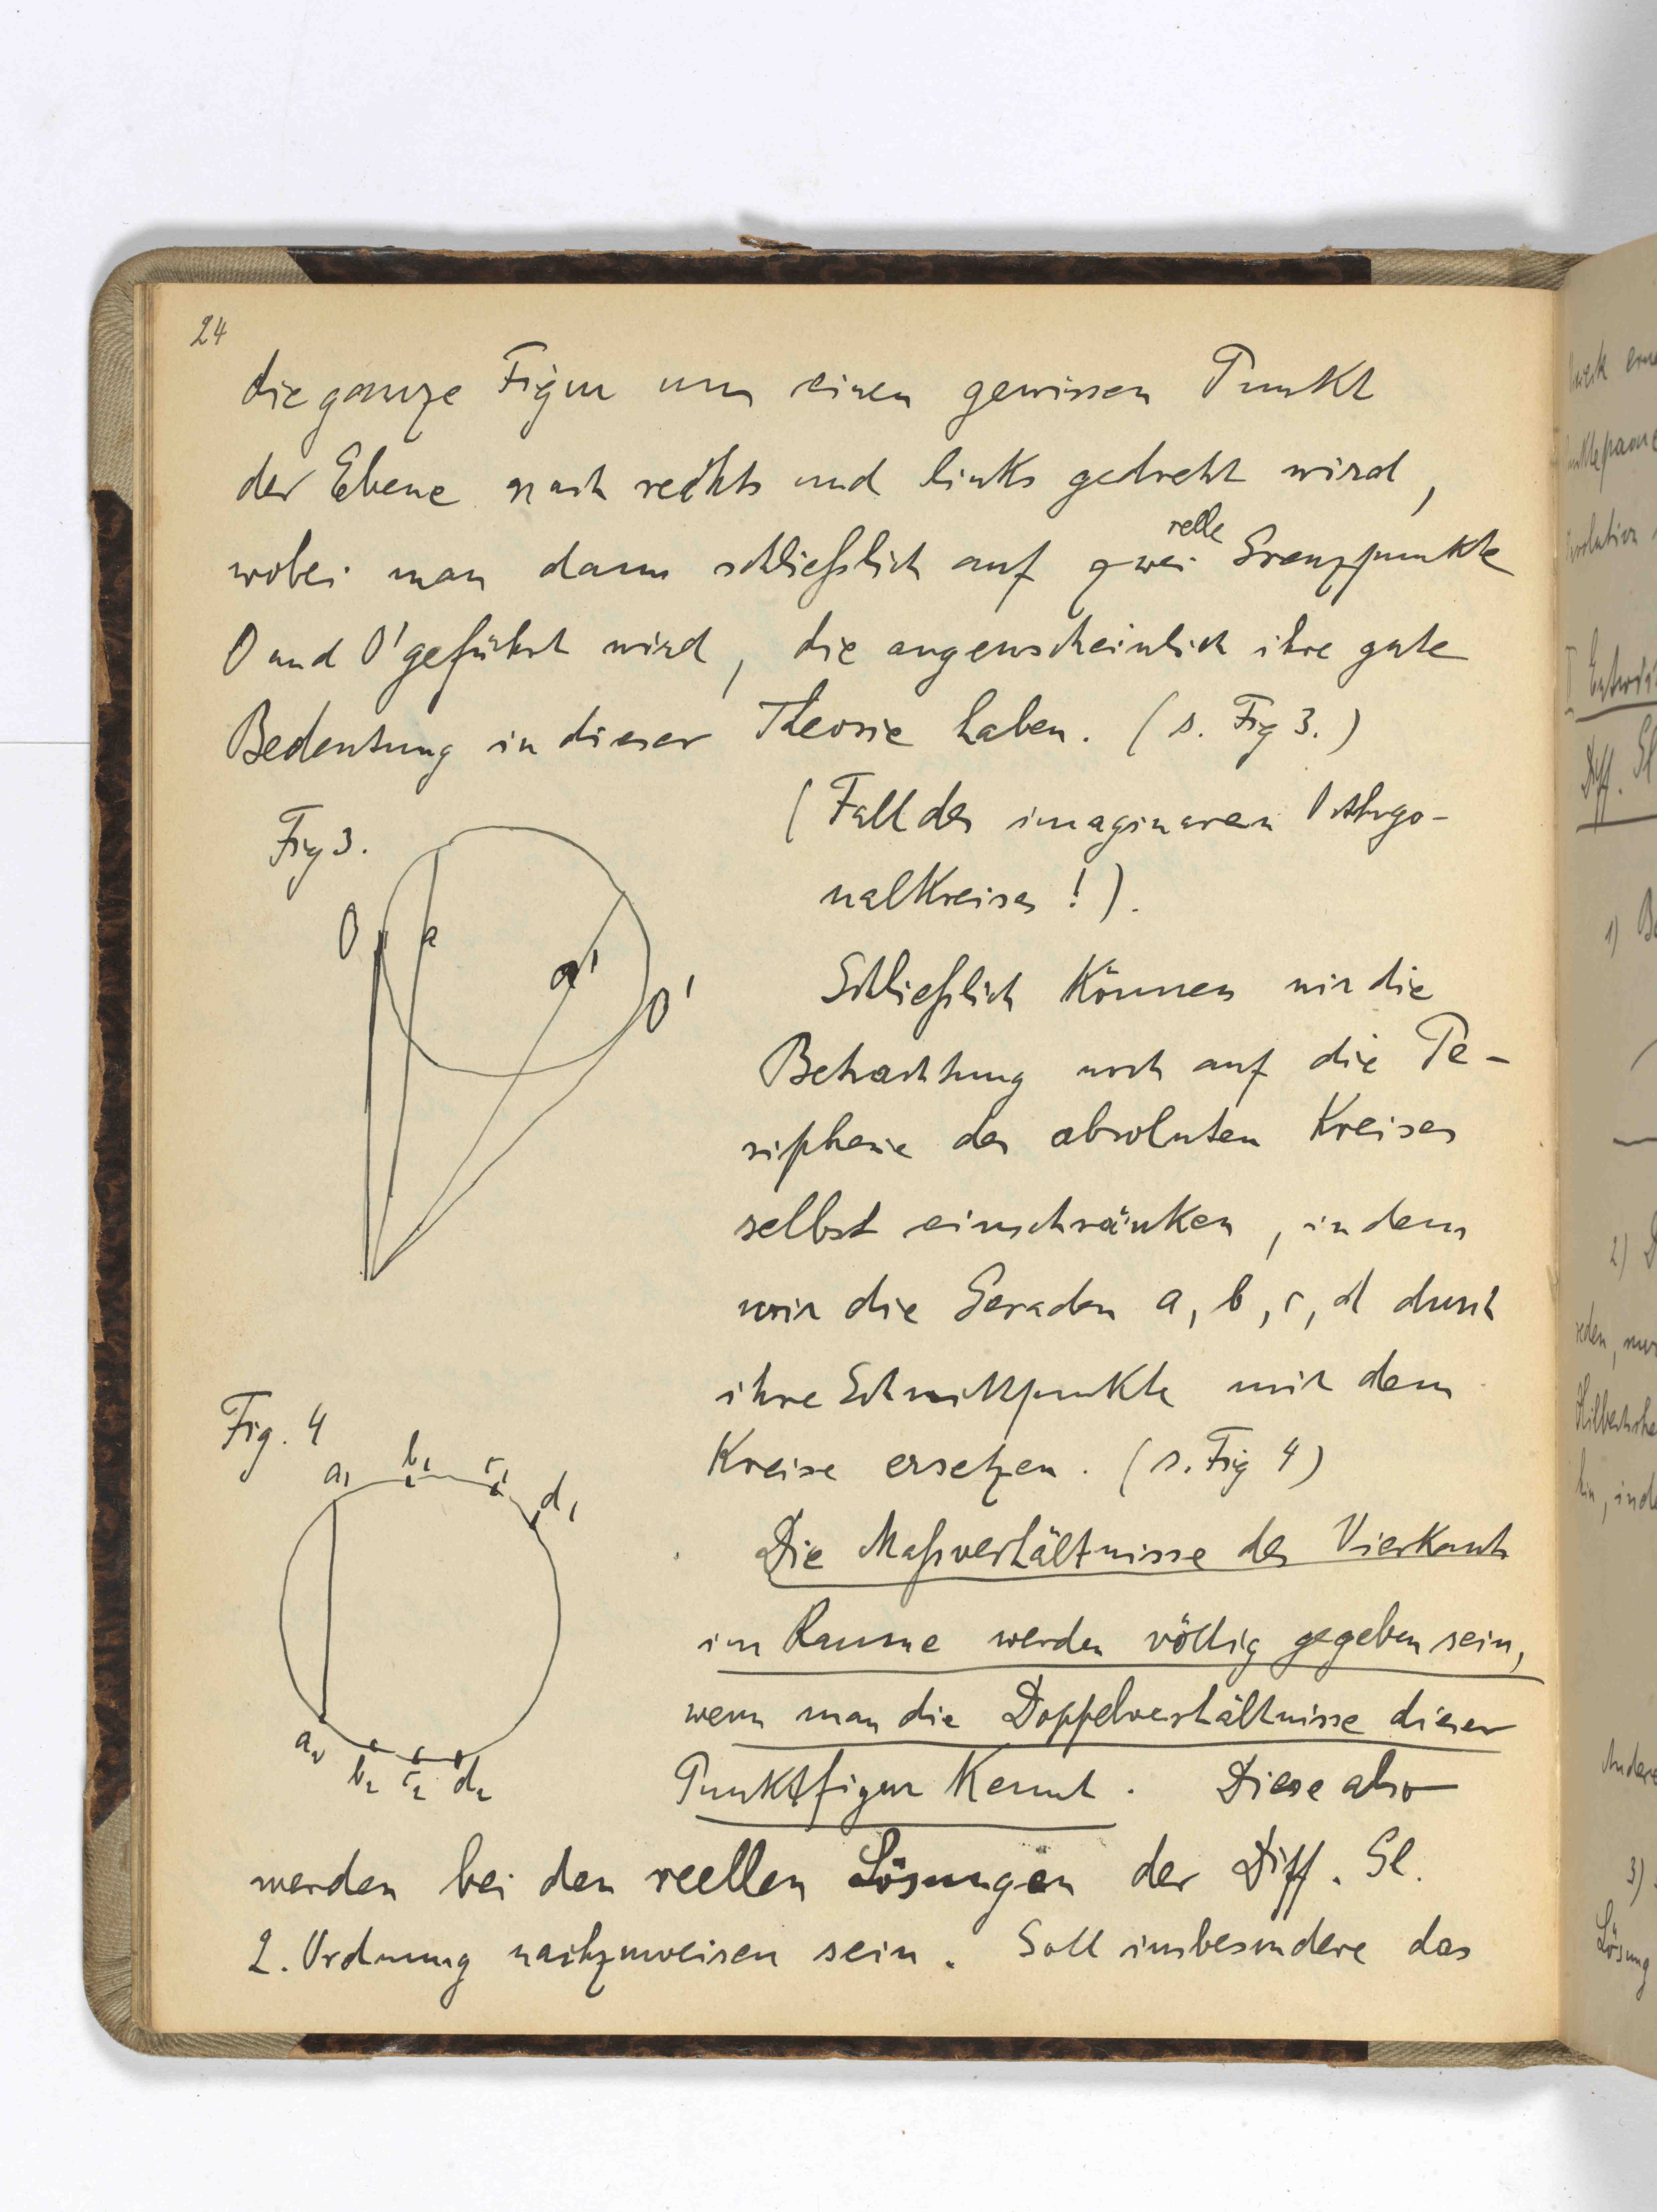 24
die ganze Figur um einen gewissen Punkt
der Ebene nach rechts und links gedreht wird,
relle
wobei man dann schließlich auf zwei Grenzpunkte
O und O' geführt wird, die augenscheinlich ihre gute
Bedeutung in dieser Theorie haben. (s. Fig 3.)
(Fall des imaginären Orthogo-
nalkreises!).
Fig 3.
O
a
a'
O'
Schließlich können wir die
Betrachtung noch auf die Pe-
ripherie des absoluten Kreises
selbst einschränken, indem
wir die Geraden a, b, c, d durch
ihre Schnittpunkte mit dem
Kreise ersetzen. (s. Fig 4)
Fig. 4
a1 b1 c1 d1
a2 b2 c2 d2
Die Maßverhältnisse des Vierkants
im Raume werden völlig gegeben sein,
wenn man die Doppelverhältnisse dieser
Punktfigur kennt. Diese also
werden bei den reellen Lösungen der Diff. Gl.
2. Ordnung nachzuweisen sein. Soll insbesondere das